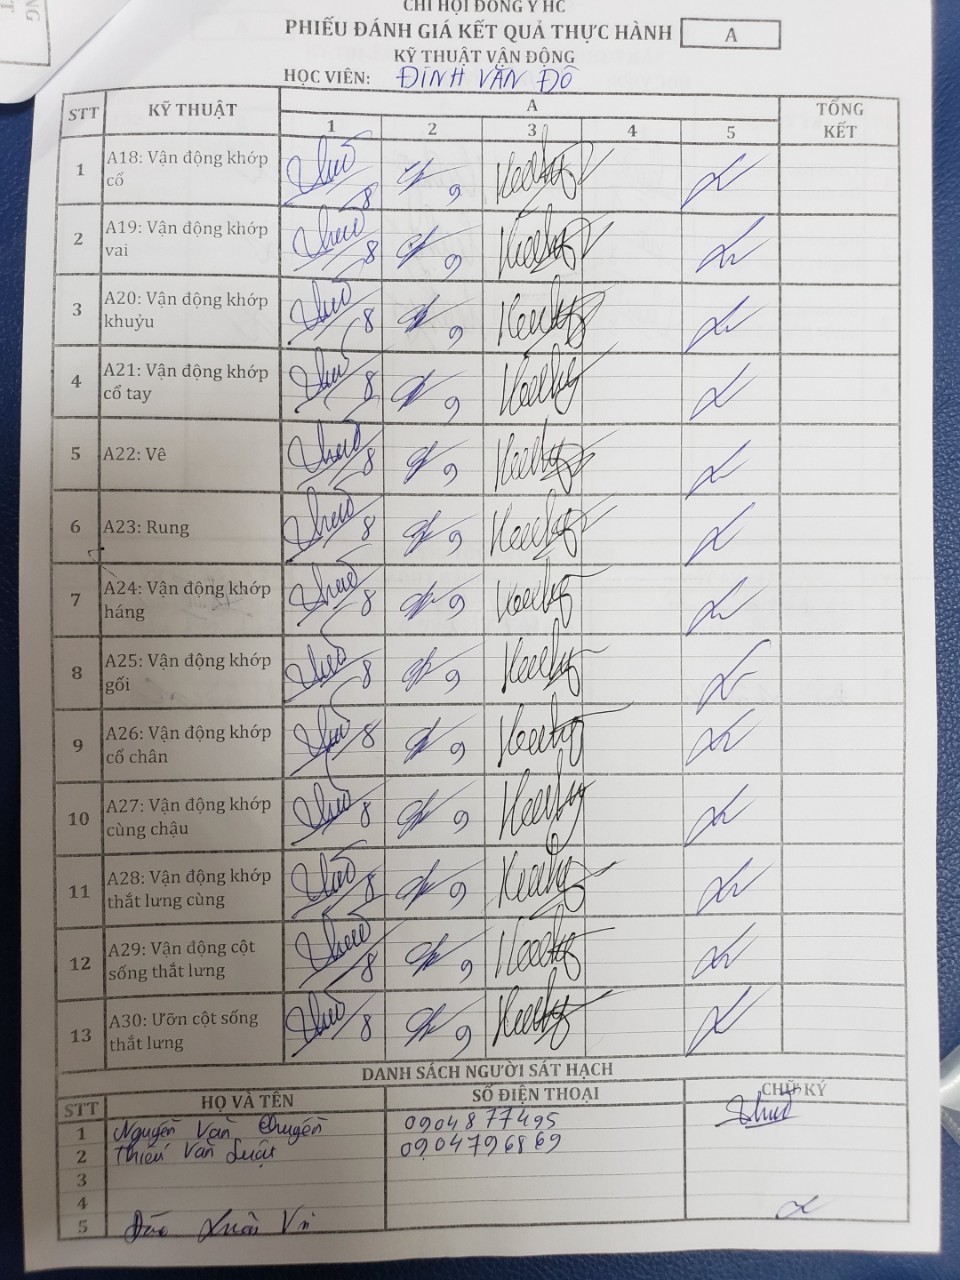 CHI HỘI ĐÔNG Y HC
PHIẾU ĐÁNH GIÁ KẾT QUẢ THỰC HÀNH A
KỸ THUẬT VẬN ĐỘNG
HỌC VIÊN: ĐINH VĂN ĐÔ
STT KỸ THUẬT A TỔNG KẾT
1 2 3 4 5
1 A18: Vận động khớp cổ 8 9
2 A19: Vận động khớp vai 8 9
3 A20: Vận động khớp khuỷu 8 9
4 A21: Vận động khớp cổ tay 8 9
5 A22: Vê 8 9
6 A23: Rung 8 9
7 A24: Vận động khớp háng 8 9
8 A25: Vận động khớp gối 8 9
9 A26: Vận động khớp cổ chân 8 9
10 A27: Vận động khớp cùng chậu 8 9
11 A28: Vận động khớp thắt lưng cùng 8 9
12 A29: Vận động cột sống thắt lưng 8 9
13 A30: Ưỡn cột sống thắt lưng 8 9
DANH SÁCH NGƯỜI SÁT HẠCH
STT HỌ VÀ TÊN SỐ ĐIỆN THOẠI CHỮ KÝ
1 Nguyễn Văn 0904877495
2 Thiều Văn Luật 0904796869
3
4
5 Đào Xuân